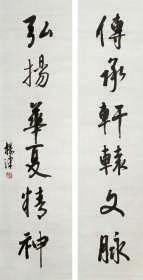 傳承軒轅文脉
弘揚華夏精神